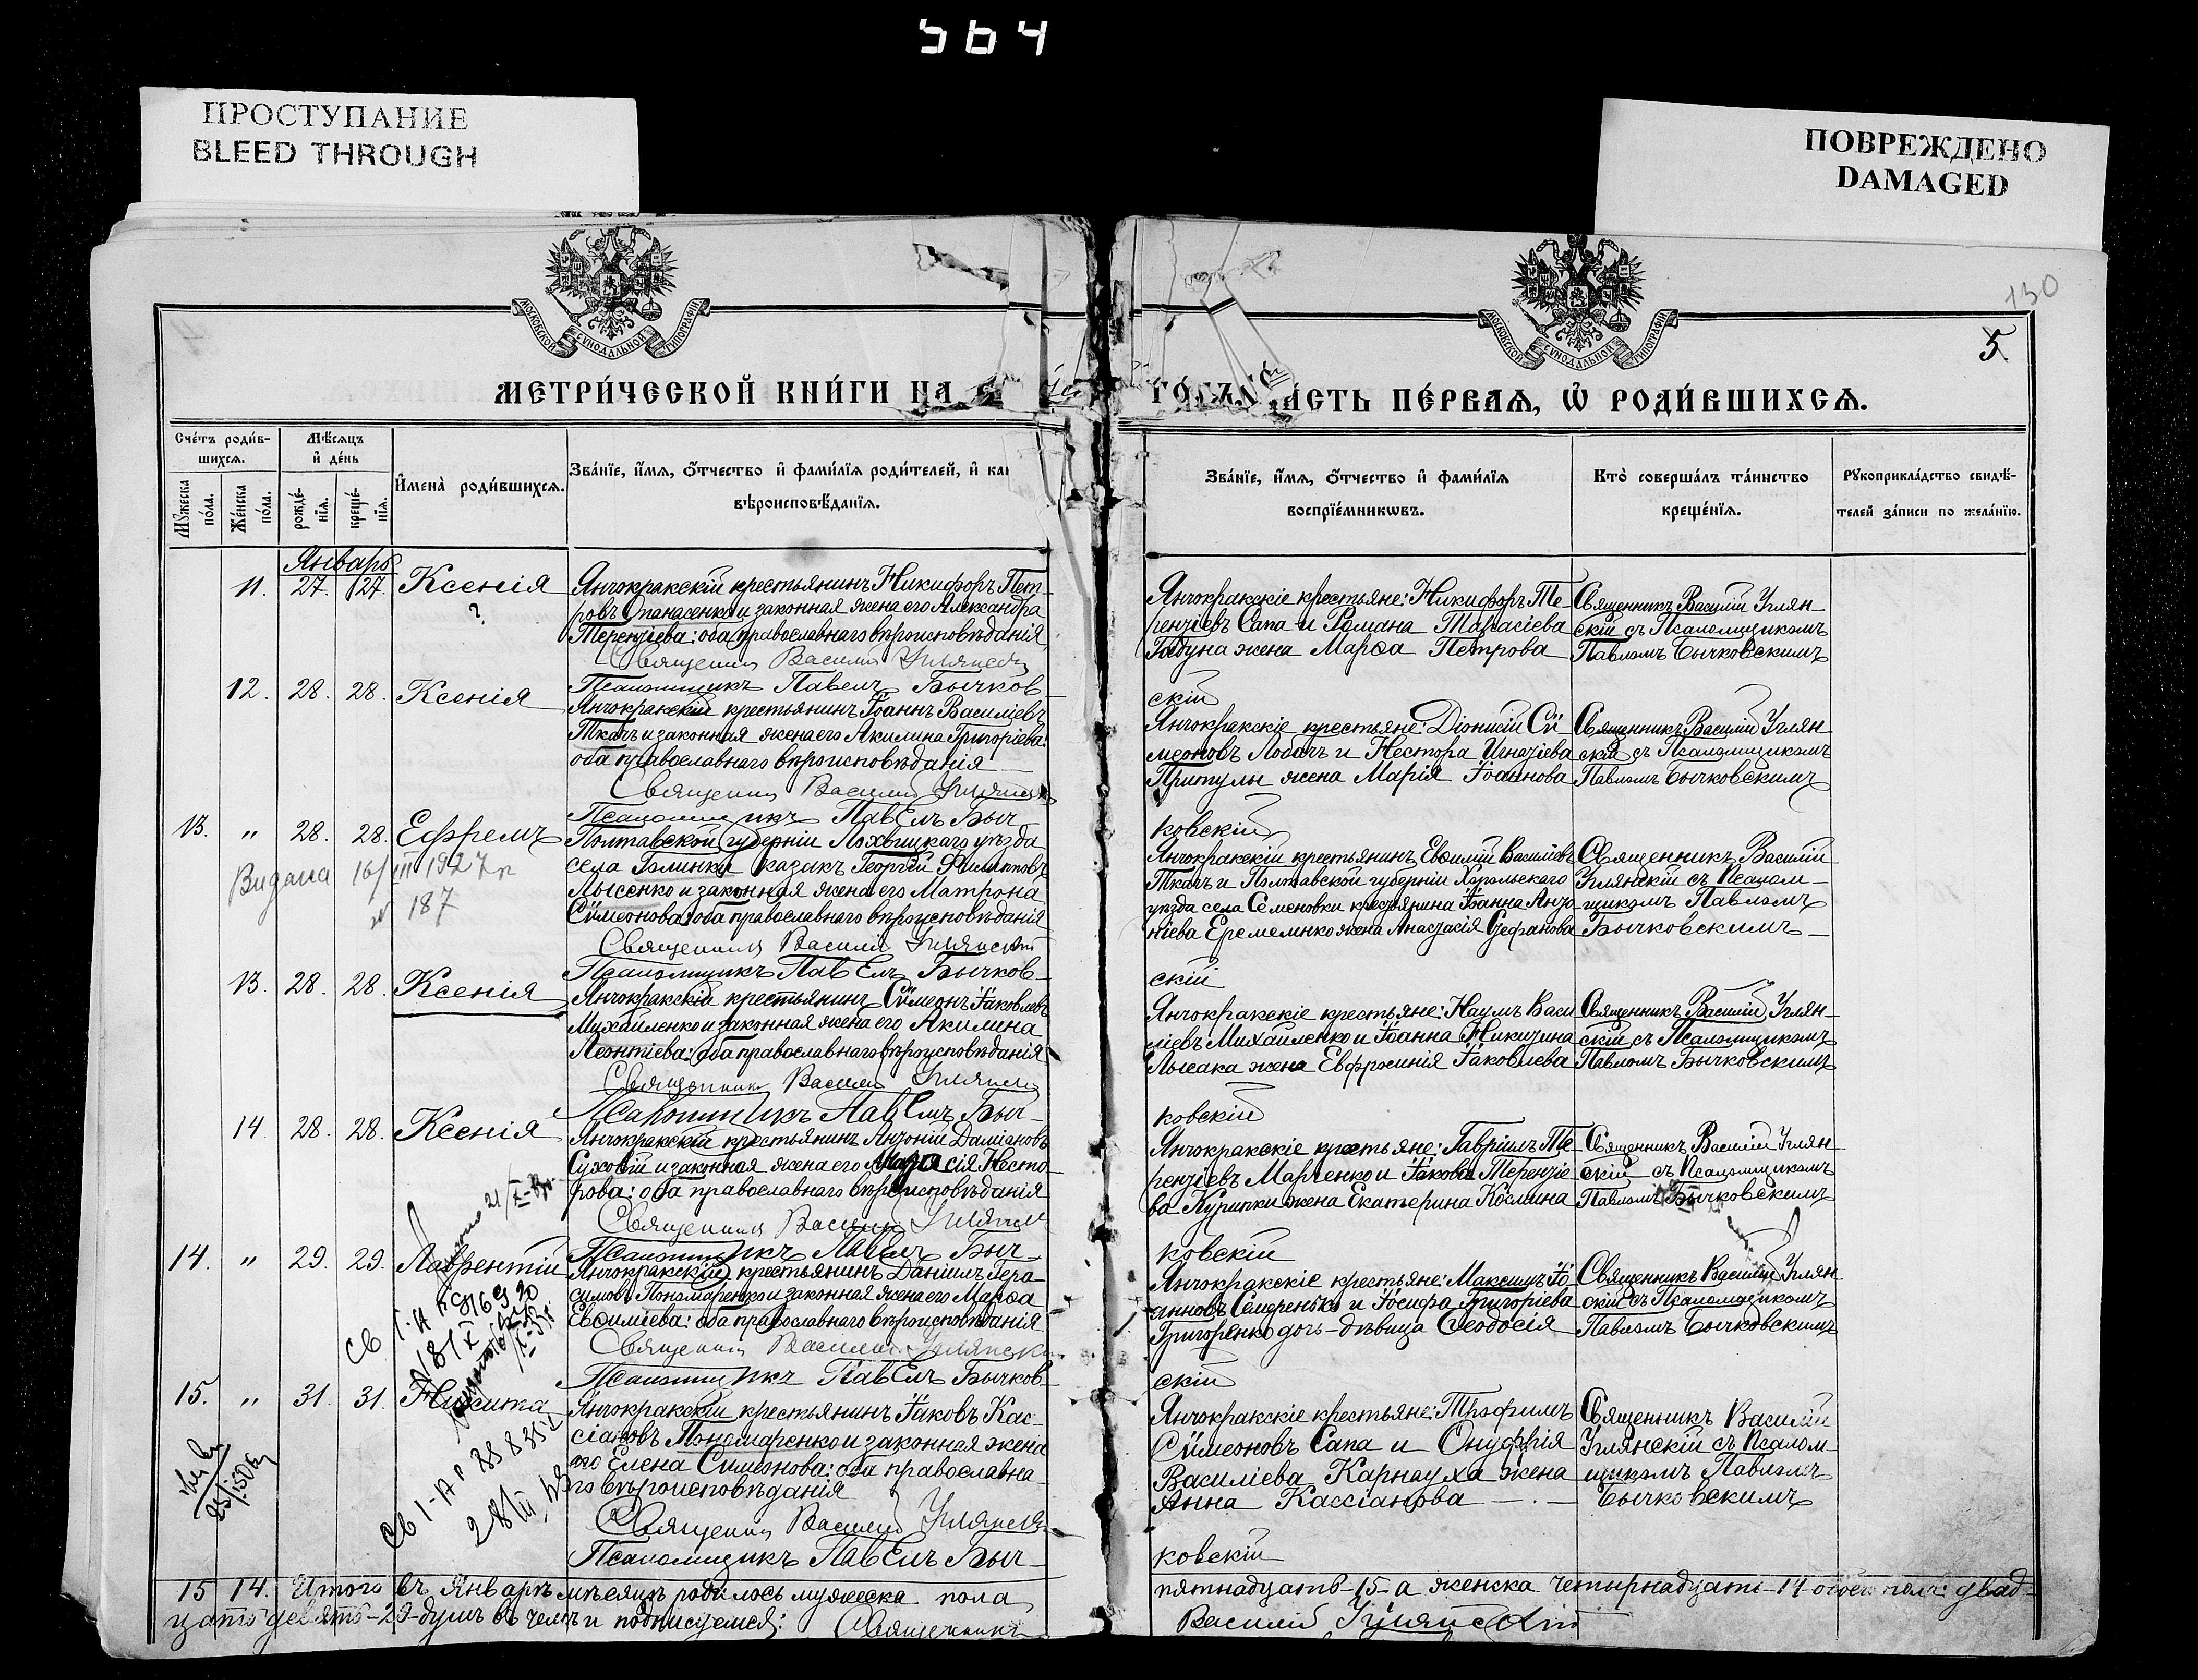 564
ПРОСТУПАНИЕ
BLEED THROUGH
ПОВРЕЖДЕНО
DAMAGED
130
5
МОСКОВСКОЙ СѴНОДАЛЬНОЙ ТИПОГРАФІИ
МОСКОВСКОЙ СѴНОДАЛЬНОЙ ТИПОГРАФІИ
МЕТРИ́ЧЕСКОЙ КНИ́ГИ НА
ПЕ́РВАѦ, Ѡ҆ РОДИ́ВШИХСѦ.
Сче́тъ роди́в-
шихсѧ.
Мѣ́сѧцъ
и҆ де́нь
Мꙋжеска по́ла.
Же́нска по́ла.
рожде́-нїѧ.
креще́-нїѧ.
И҆мена̀ роди́вшихсѧ.
Зва́нїе, и҆́мѧ, ѻ҆́тчество и҆ фами́лїѧ роди́телей, и҆
вѣроисповѣ́данїѧ.
Зва́нїе, и҆́мѧ, ѻ҆́тчество и҆ фами́лїѧ
воспрїе́мникѡвъ.
Кто̀ соверша́лъ та́инство
креще́нїѧ.
Рꙋкоприкла́дство свидѣ́-
телей за́писи по жела́нїю.
Январь
11. 27. 27. Ксенія
?
Янчокракскій крестьянинъ Никифоръ Пет-
ровъ Опанасенко и законная жена его Александра
Терентіева: оба православнаго вѣроисповѣданія
Священникъ Василій Углянскій
Янчокракскіе крестьяне: Никифоръ Те-
рентіевъ Сапа и Романа Тарасіева
Габуна жена Марѳа Петрова
Священникъ Василій Углян-
скій съ Псаломщикомъ
Павломъ Бычковскимъ
Псаломщикъ Павелъ Бычков-
скій
12. 28. 28. Ксенія
Янчокракскій крестьянинъ Іоаннъ Василіевъ
Ткачъ и законная жена его Акилина Григоріева:
оба православнаго вѣроисповѣданія
Священникъ Василій Углянскій
Янчокракскіе крестьяне: Діонисій Сѵ-
меоновъ Лобачъ и Нестора Игнатіева
Притулы жена Марія Іоаннова
Священникъ Василій Углян
скій съ Псаломщикомъ
Павломъ Бычковскимъ
Псаломщикъ Павелъ Быч-
ковскій
13. " 28. 28. Ефремъ
Видана 16/III 1927 р
№ 187
Полтавской губерніи Лохвицкаго уѣзда
села казакъ Георгій Филипповъ
Лысенко и законная жена его Матрона
Сѵмеонова: оба православнаго вѣроисповѣданія
Священникъ Василій Углянскій
Янчокракскій крестьянинъ Евѳимій Василіевъ
Ткачъ и Полтавской губерніи Хорольскаго
уѣзда села Семеновки крестьянина Іоанна Анто
ніева Еременко жена Анастасія Стефанова
Священникъ Василій
Углянскій съ Псалом-
щикомъ Павломъ
Бычковскимъ
Псаломщикъ Павелъ Бычков-
скій
13. 28. 28. Ксенія
Янчокракскій крестьянинъ Сѵмеонъ Іаковлевъ
Михайленко и законная жена его Акилина
Леонтіева: оба православнаго вѣроисповѣданія
Священникъ Василій Углянскій
Янчокракскіе крестьяне: Наумъ Васи
ліевъ Михайленко и Іоанна Никитина
Лысака жена Евфросинія Іаковлева
Священникъ Василій Углян-
скій съ Псаломщикомъ
Павломъ Бычковскимъ
Псаломщикъ Павелъ Быч-
ковскій
14 28. 28. Ксенія
Янчокракскій крестьянинъ Антоній Даміановъ
Суховій и законная жена его Несто-
рова: оба православнаго вѣроисповѣданія
Священникъ Василій Углянскій
Янчокракскіе крестьяне: Гавріилъ Те-
рентіевъ Марченко и Іакова Терентіе
ва Курипки жена Екатерина Космина
Священникъ Василій Углян-
скій съ Псаломщикомъ
Павломъ Бычковскимъ
Псаломщикъ Павелъ Быч-
ковскій
14. " 29. 29. Лаврентій
Янчокракскій крестьянинъ Даніилъ Гера-
симовъ Пономаренко и законная жена его Марѳа
Евѳиміева: оба православнаго вѣроисповѣданія
Священникъ Василій Углянскій
Янчокракскіе крестьяне: Максимъ Іо-
анновъ Семренько и Іосифа Григоріева
Григоренко дочь-дѣвица Ѳеодосія
Священникъ Василій Углян
скій съ Псаломщикомъ
Павломъ Бычковскимъ
Псаломщикъ Павелъ Бычков-
скій
15. " 31. 31. Никита
Янчокракскій крестьянинъ Іаковъ Кас-
сіановъ Пономаренко и законная жена
его Елена Симеонова: оба православна-
го вѣроисповѣданія
Священникъ Василій Углянскій
Янчокракскіе крестьяне: Трофимъ
Сѵмеоновъ Сапа и Онуфрія
Василіева Карнауха жена
Анна Кассіанова
Священникъ Василій
Углянскій съ Псалом-
щикомъ Павломъ
Бычковскимъ
Псаломщикъ Павелъ Быч-
ковскій
15 14. Итого въ Январѣ мѣсяцѣ родилось мужеска пола пятнадцать-15-а женска четырнадцать-14 обоего пола двад-
цать девять-29-душъ въ чемъ и подписуемся: Священникъ Василій Углянскій